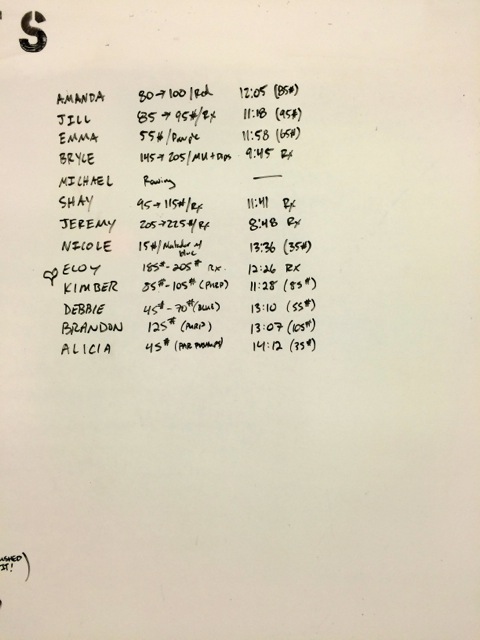 S
AMANDA 80→100/Red 12:05 (85#)
JILL 85→95#/Rx 11:18 (95#)
EMMA 55#/Purple 11:58 (65#)
BRYCE 145→205/MU+Dips 9:45 Rx
MICHAEL Rowing —
SHAY 95→115#/Rx 11:41 Rx
JEREMY 205→225#/Rx 8:48 Rx
NICOLE 15#/ w/ blue 13:36 (35#)
ELOY 185#-205# Rx. 12:26 Rx
♡ KIMBER 85#-105# (PURP) 11:28 (85#)
DEBBIE 45#-70# (BLUE) 13:10 (55#)
BRANDON 125# (PURP) 13:07 (105#)
ALICIA 45# 14:12 (35#)
IT!)